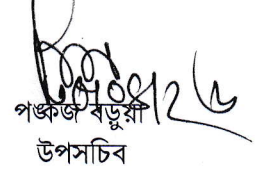 পঙ্কজ বড়ুয়া
উপসচিব